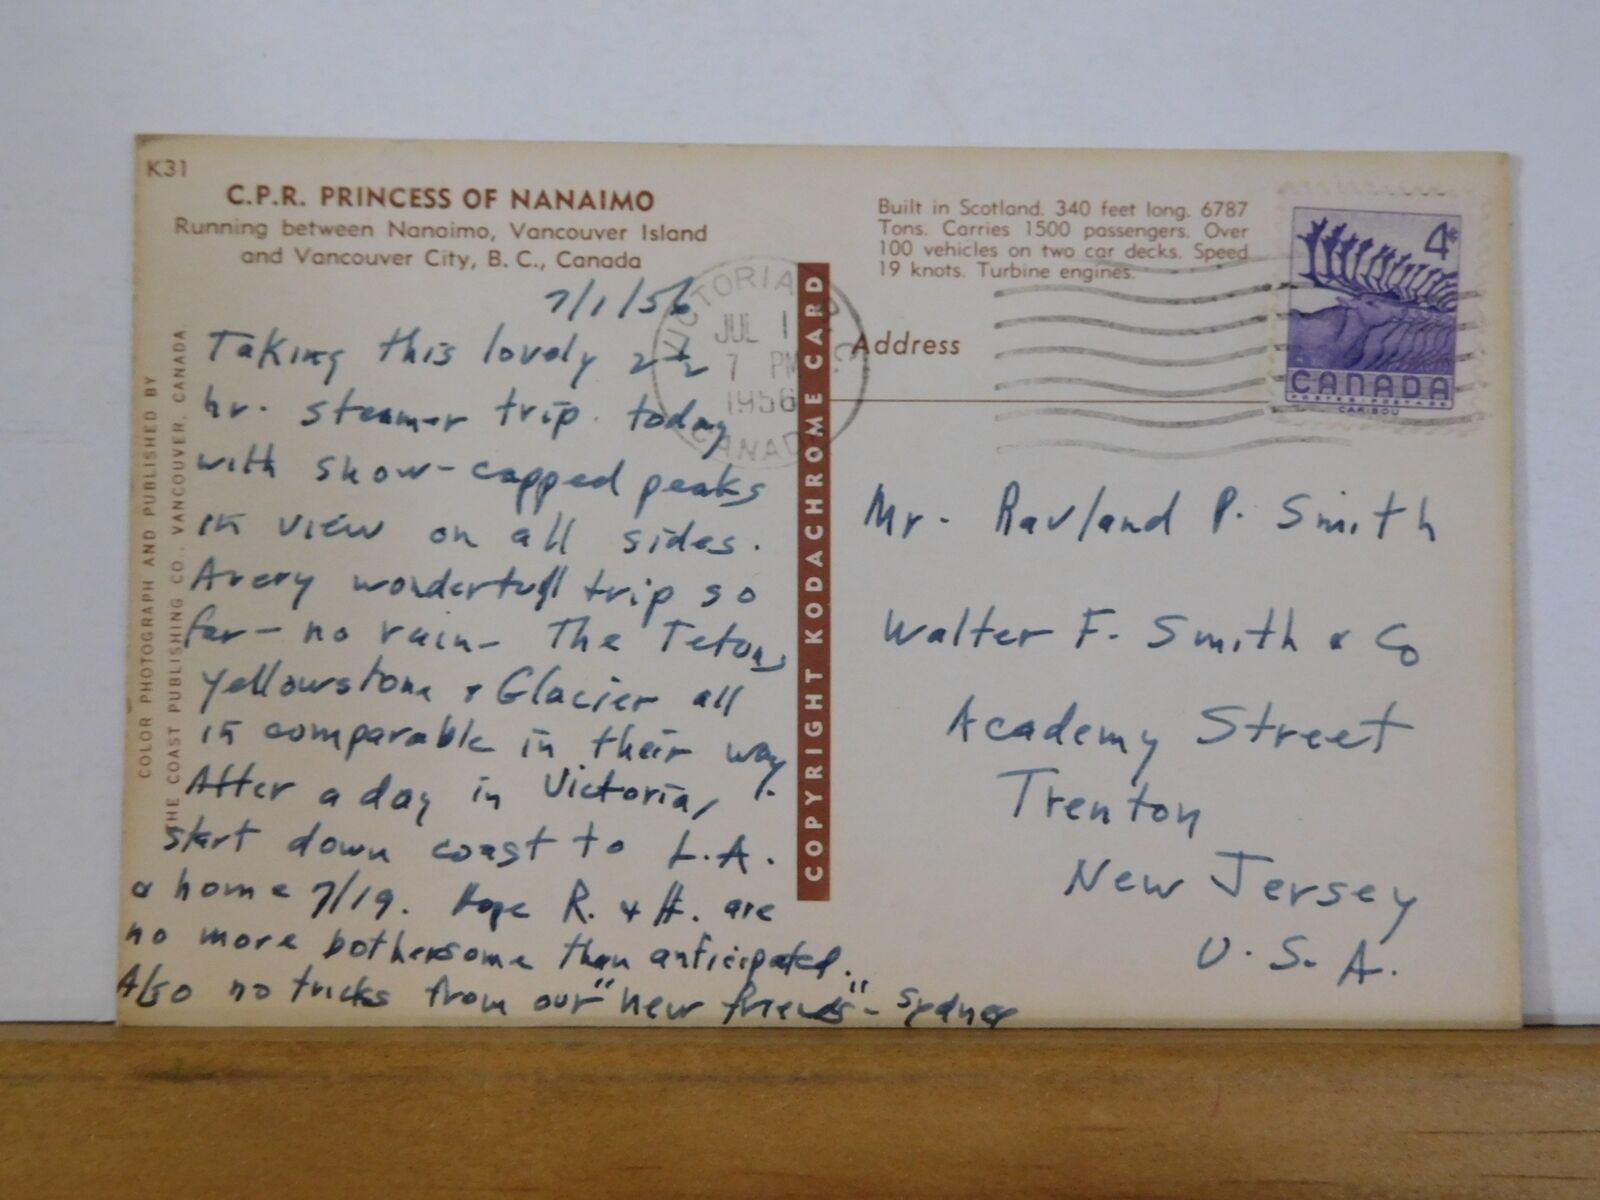 K31
C.P.R. PRINCESS OF NANAIMO
Running between Nanaimo, Vancouver Island
and Vancouver City, B. C., Canada
Built in Scotland. 340 feet long. 6787
Tons. Carries 1500 passengers. Over
100 vehicles on two car decks. Speed
19 knots. Turbine engines.
COLOR PHOTOGRAPH AND PUBLISHED BY
THE COAST PUBLISHING CO., VANCOUVER, CANADA.
7/1/56
Taking this lovely 2½
hr. steamer trip today
with snow-capped peaks
in view on all sides.
A very wonderfull trip so
far - no rain - The Tetons,
Yellowstone & Glacier all
in comparable in their way.
After a day in Victoria,
start down coast to L.A.
& home 7/19. Hope R. & H. are
no more bothersome than anticipated.
Also no tricks from our "new friends" - Sydney
VICTORIA B.C.
JUL 1
7 PM
1956
CANADA
COPYRIGHT KODACHROME CARD
Address
4¢
CANADA
POSTES-POSTAGE
CARIBOU
Mr. Ravland P. Smith
Walter F. Smith & Co
Academy Street
Trenton
New Jersey
U.S.A.